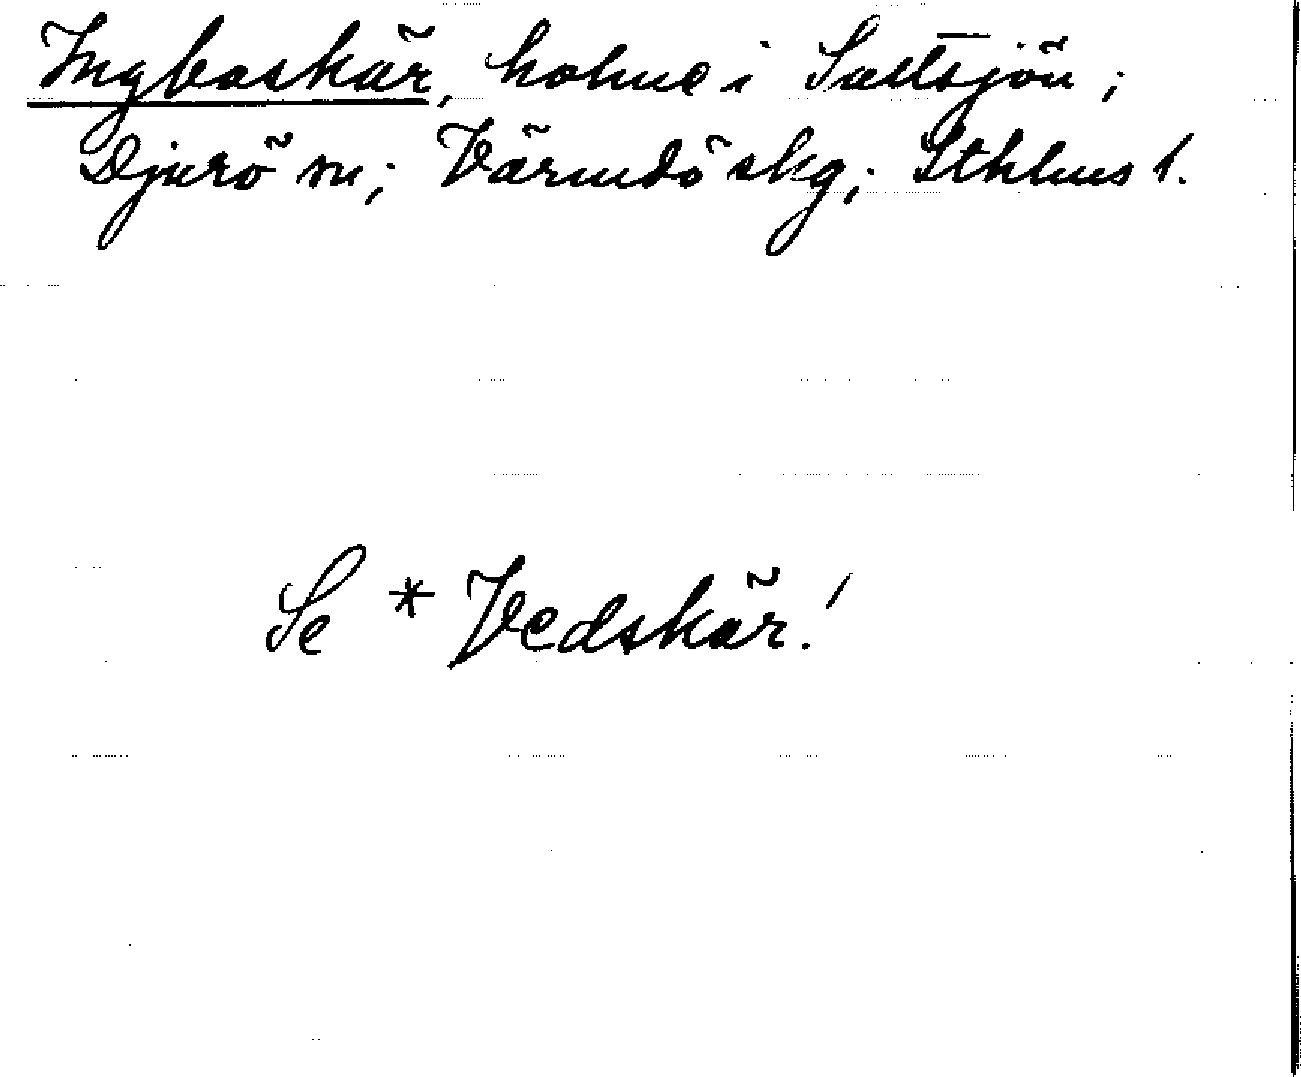 Ingboskär, holme i Saltsjön;
Djurö sn; Värmdö skg; Sthlms l.
Se * Vedskär!